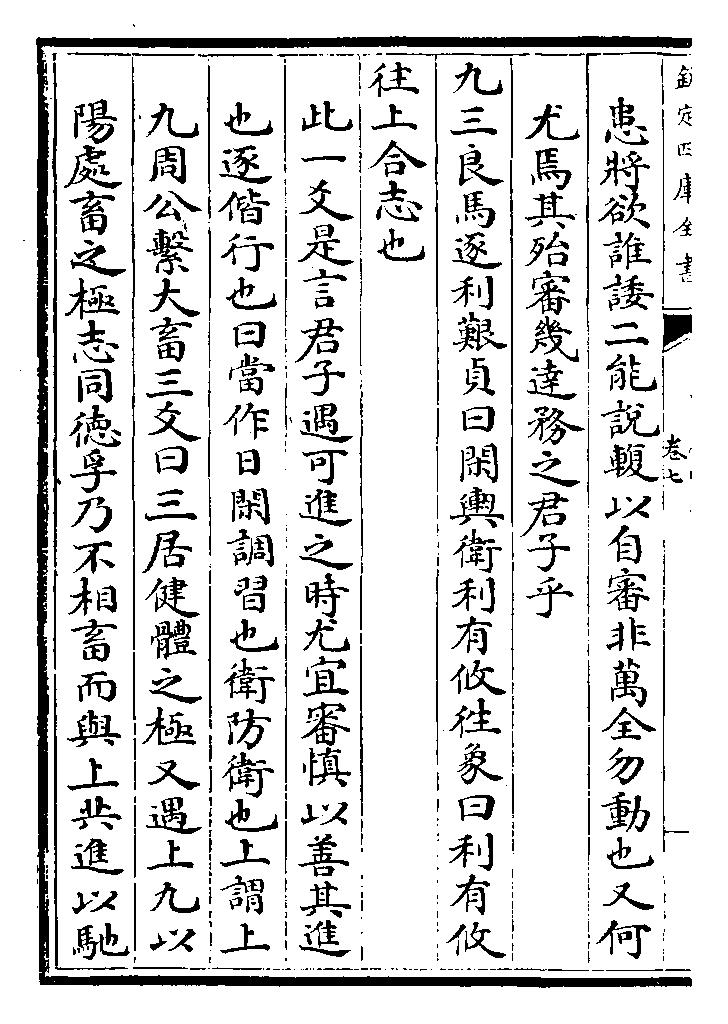 欽定四庫全書
卷七
患將欲誰諉二能說輹以自審非萬全勿動也又何
尤焉其殆審幾達務之君子乎
九三良馬逐利艱貞曰閑輿衛利有攸往象曰利有攸
往上合志也
此一爻是言君子遇可進之時尤宜審慎以善其進
也逐偕行也曰當作日閑調習也衛防衛也上謂上
九周公繫大畜三爻曰三居健體之極又遇上九以
陽處畜之極志同德孚乃不相畜而與上共進以馳